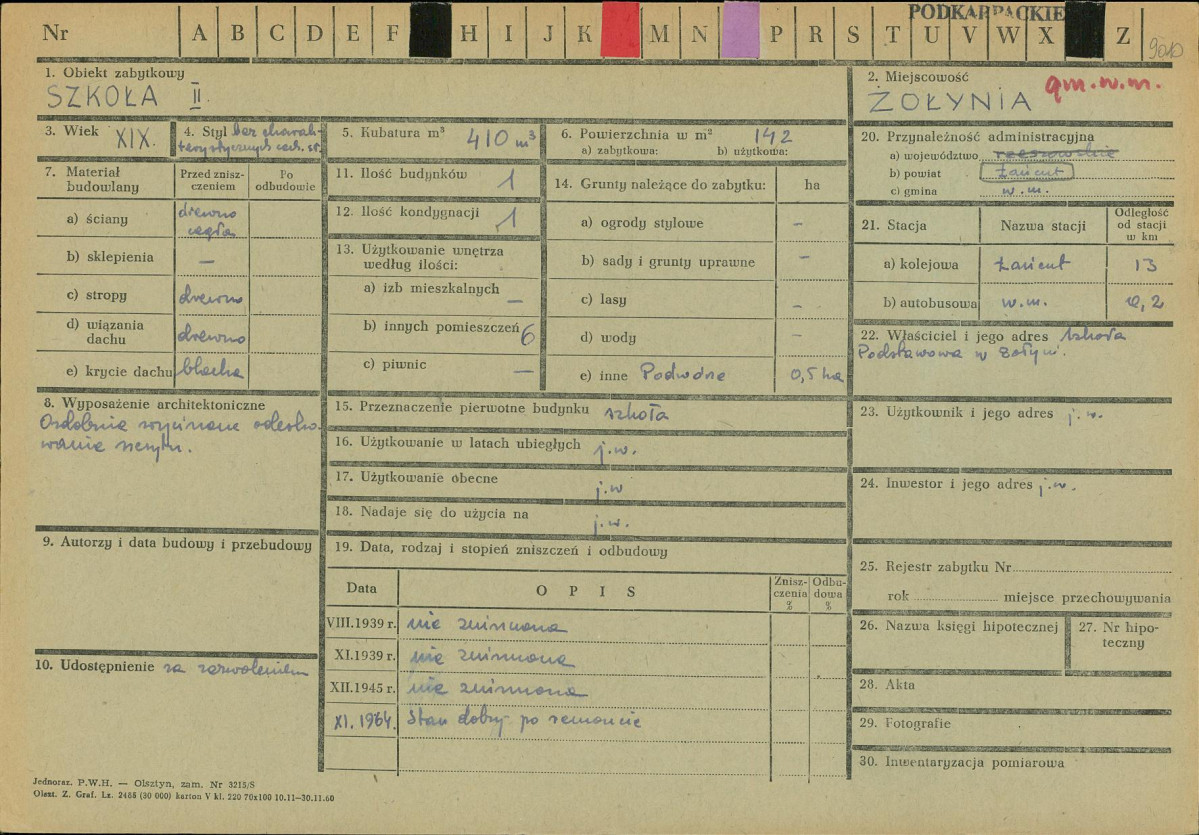 PODKARPACKIE
Nr A B C D E F H I J K M N P R S T U V W X Z
9010
1. Obiekt zabytkowy
SZKOŁA II.
2. Miejscowość
gm. w. m.
ŻOŁYNIA
3. Wiek XIX.
4. Styl bez charak-
terystycznych cech st.
5. Kubatura m³ 410 m³
6. Powierzchnia w m² 142
a) zabytkowa: b) użytkowa:
20. Przynależność administracyjna
a) województwo rzeszowskie
b) powiat Łańcut
c) gmina w. m.
7. Materiał
budowlany
Przed znisz-
czeniem
Po
odbudowie
a) ściany drewno
cegła
b) sklepienia —
c) stropy drewno
d) wiązania
dachu drewno
e) krycie dachu blacha
11. Ilość budynków 1
12. Ilość kondygnacji 1
13. Użytkowanie wnętrza
według ilości:
a) izb mieszkalnych —
b) innych pomieszczeń 6
c) piwnic —
14. Grunty należące do zabytku: ha
a) ogrody stylowe —
b) sady i grunty uprawne —
c) lasy —
d) wody —
e) inne Podwórze 0,5 ha
21. Stacja Nazwa stacji
Odległość
od stacji
w km
a) kolejowa Łańcut 13
b) autobusowa w. m. 0,2
22. Właściciel i jego adres Szkoła
Podstawowa w Żołyni.
8. Wyposażenie architektoniczne
Ozdobnie wycinane odesko-
wanie szczytu.
15. Przeznaczenie pierwotne budynku szkoła
16. Użytkowanie w latach ubiegłych j.w.
17. Użytkowanie obecne j.w
18. Nadaje się do użycia na j.w.
23. Użytkownik i jego adres j. w.
24. Inwestor i jego adres j. w.
9. Autorzy i data budowy i przebudowy
19. Data, rodzaj i stopień zniszczeń i odbudowy
Data OPIS
Znisz-
czenia
%
Odbu-
dowa
%
VIII.1939 r. nie zniszczona
XI.1939 r. nie zniszczona
XII.1945 r. nie zniszczona
XI. 1964. Stan dobry po remoncie
10. Udostępnienie za zezwoleniem
25. Rejestr zabytku Nr
rok miejsce przechowywania
26. Nazwa księgi hipotecznej
27. Nr hipo-
teczny
28. Akta
29. Fotografie
30. Inwentaryzacja pomiarowa
Jednoraz. P.W.H. — Olsztyn, zam. Nr 3215/S
Olszt. Z. Graf. Lz. 2488 (30 000) karton V kl. 220 70x100 10.11—30.11.60